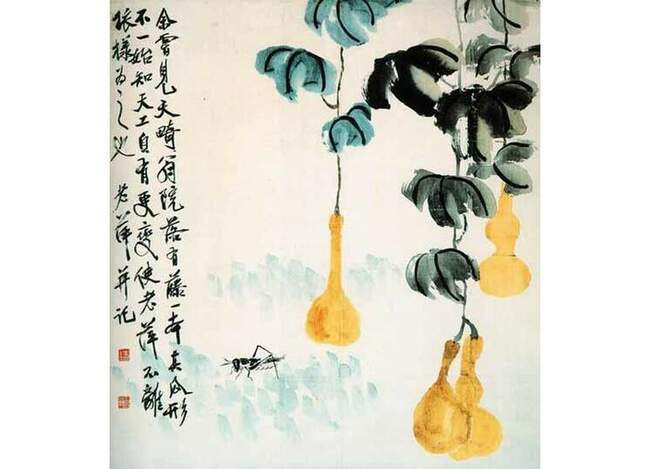 余嘗見天畸翁院落有藤一本其瓜形
不一始知天工自有更變使老萍不離
依樣為之也 老萍并記